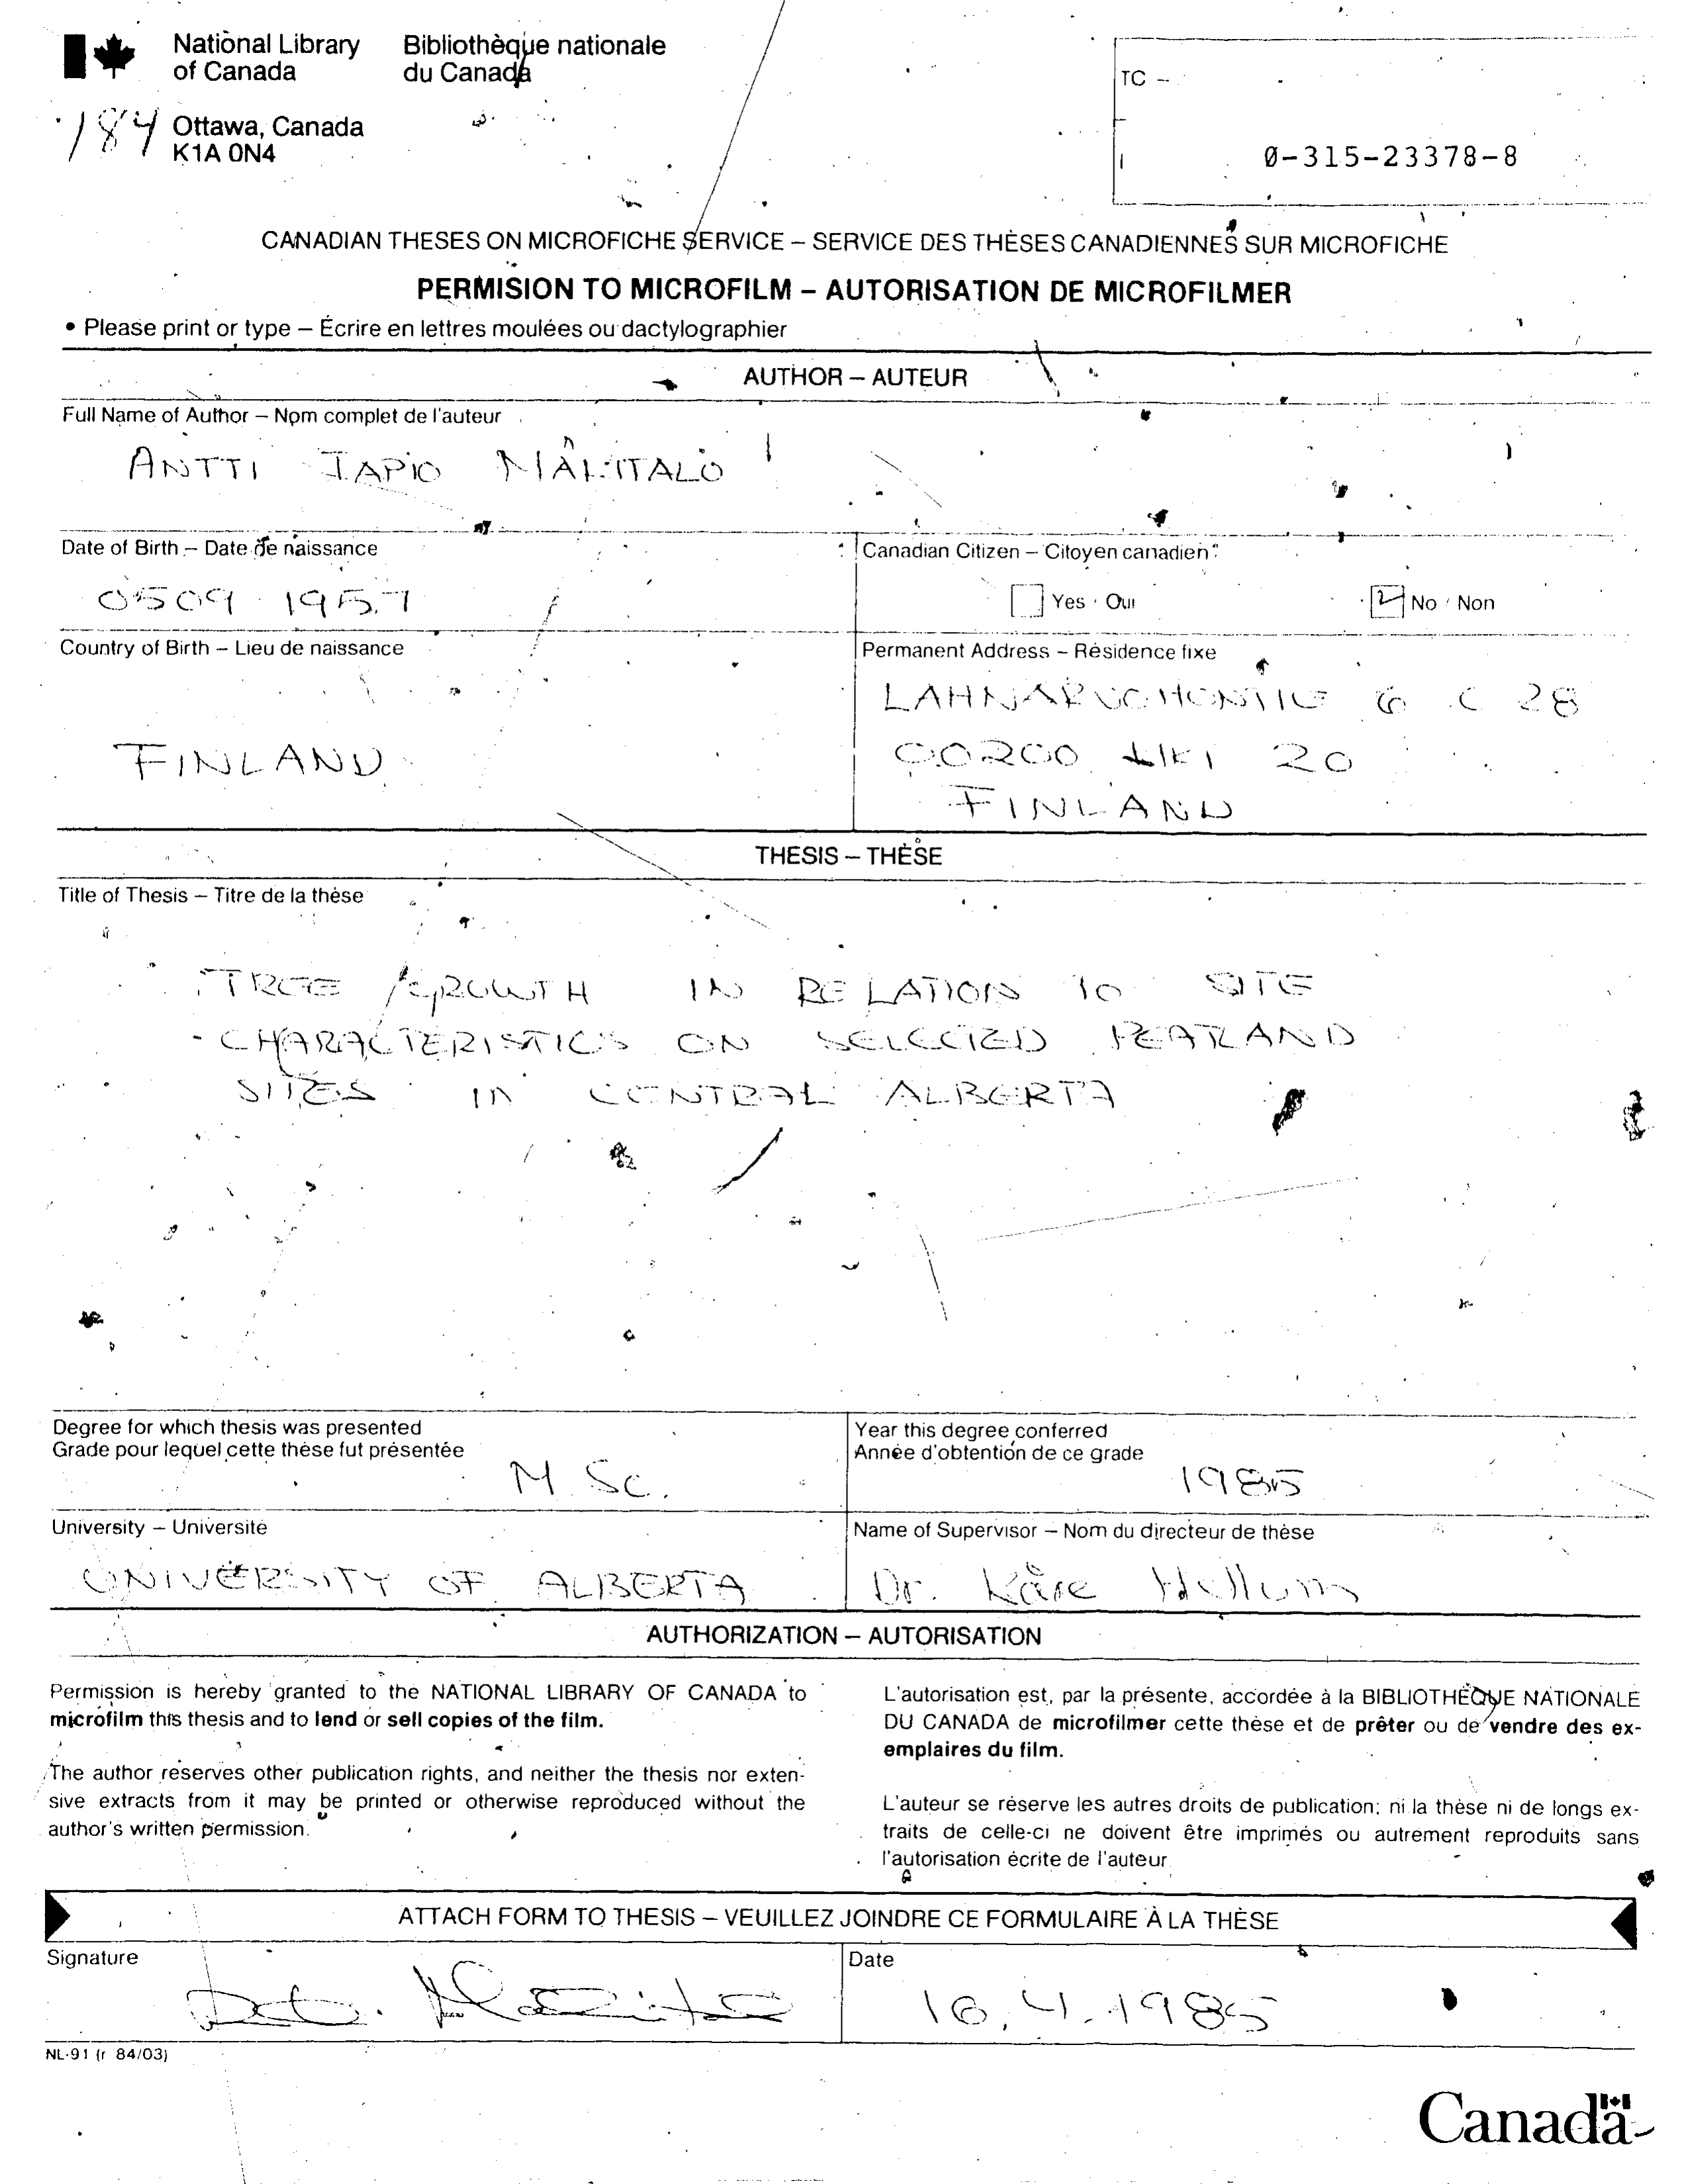 National Library of Canada
Bibliothèque nationale du Canada
Ottawa, Canada
K1A 0N4
TC –
I
0-315-23378-8
CANADIAN THESES ON MICROFICHE SERVICE – SERVICE DES THÈSES CANADIENNES SUR MICROFICHE
PERMISION TO MICROFILM – AUTORISATION DE MICROFILMER
• Please print or type – Écrire en lettres moulées ou dactylographier
AUTHOR – AUTEUR
Full Name of Author – Nom complet de l'auteur
ANTTI TAPIO MÄKITALO
Date of Birth – Date de naissance
0509 1957
Canadian Citizen – Citoyen canadien
Yes / Oui
No / Non
Country of Birth – Lieu de naissance
FINLAND
Permanent Address – Résidence fixe
6 C 28
00200 HKI 20
FINLAND
THESIS – THÈSE
Title of Thesis – Titre de la thèse
TREE GROWTH IN RELATION TO SITE
CHARACTERISTICS ON SELECTED PEATLAND
SITES IN CENTRAL ALBERTA
Degree for which thesis was presented
Grade pour lequel cette thèse fut présentée
M. Sc.
Year this degree conferred
Année d'obtention de ce grade
1985
University – Université
UNIVERSITY OF ALBERTA
Name of Supervisor – Nom du directeur de thèse
Dr. Kåre Hellum
AUTHORIZATION – AUTORISATION
Permission is hereby granted to the NATIONAL LIBRARY OF CANADA to
microfilm this thesis and to lend or sell copies of the film.
The author reserves other publication rights, and neither the thesis nor exten-
sive extracts from it may be printed or otherwise reproduced without the
author's written permission.
L'autorisation est, par la présente, accordée à la BIBLIOTHÈQUE NATIONALE
DU CANADA de microfilmer cette thèse et de prêter ou de vendre des ex-
emplaires du film.
L'auteur se réserve les autres droits de publication; ni la thèse ni de longs ex-
traits de celle-ci ne doivent être imprimés ou autrement reproduits sans
l'autorisation écrite de l'auteur.
ATTACH FORM TO THESIS – VEUILLEZ JOINDRE CE FORMULAIRE À LA THÈSE
Signature
Date
16.4.1985
NL-91 (r 84/03)
Canada